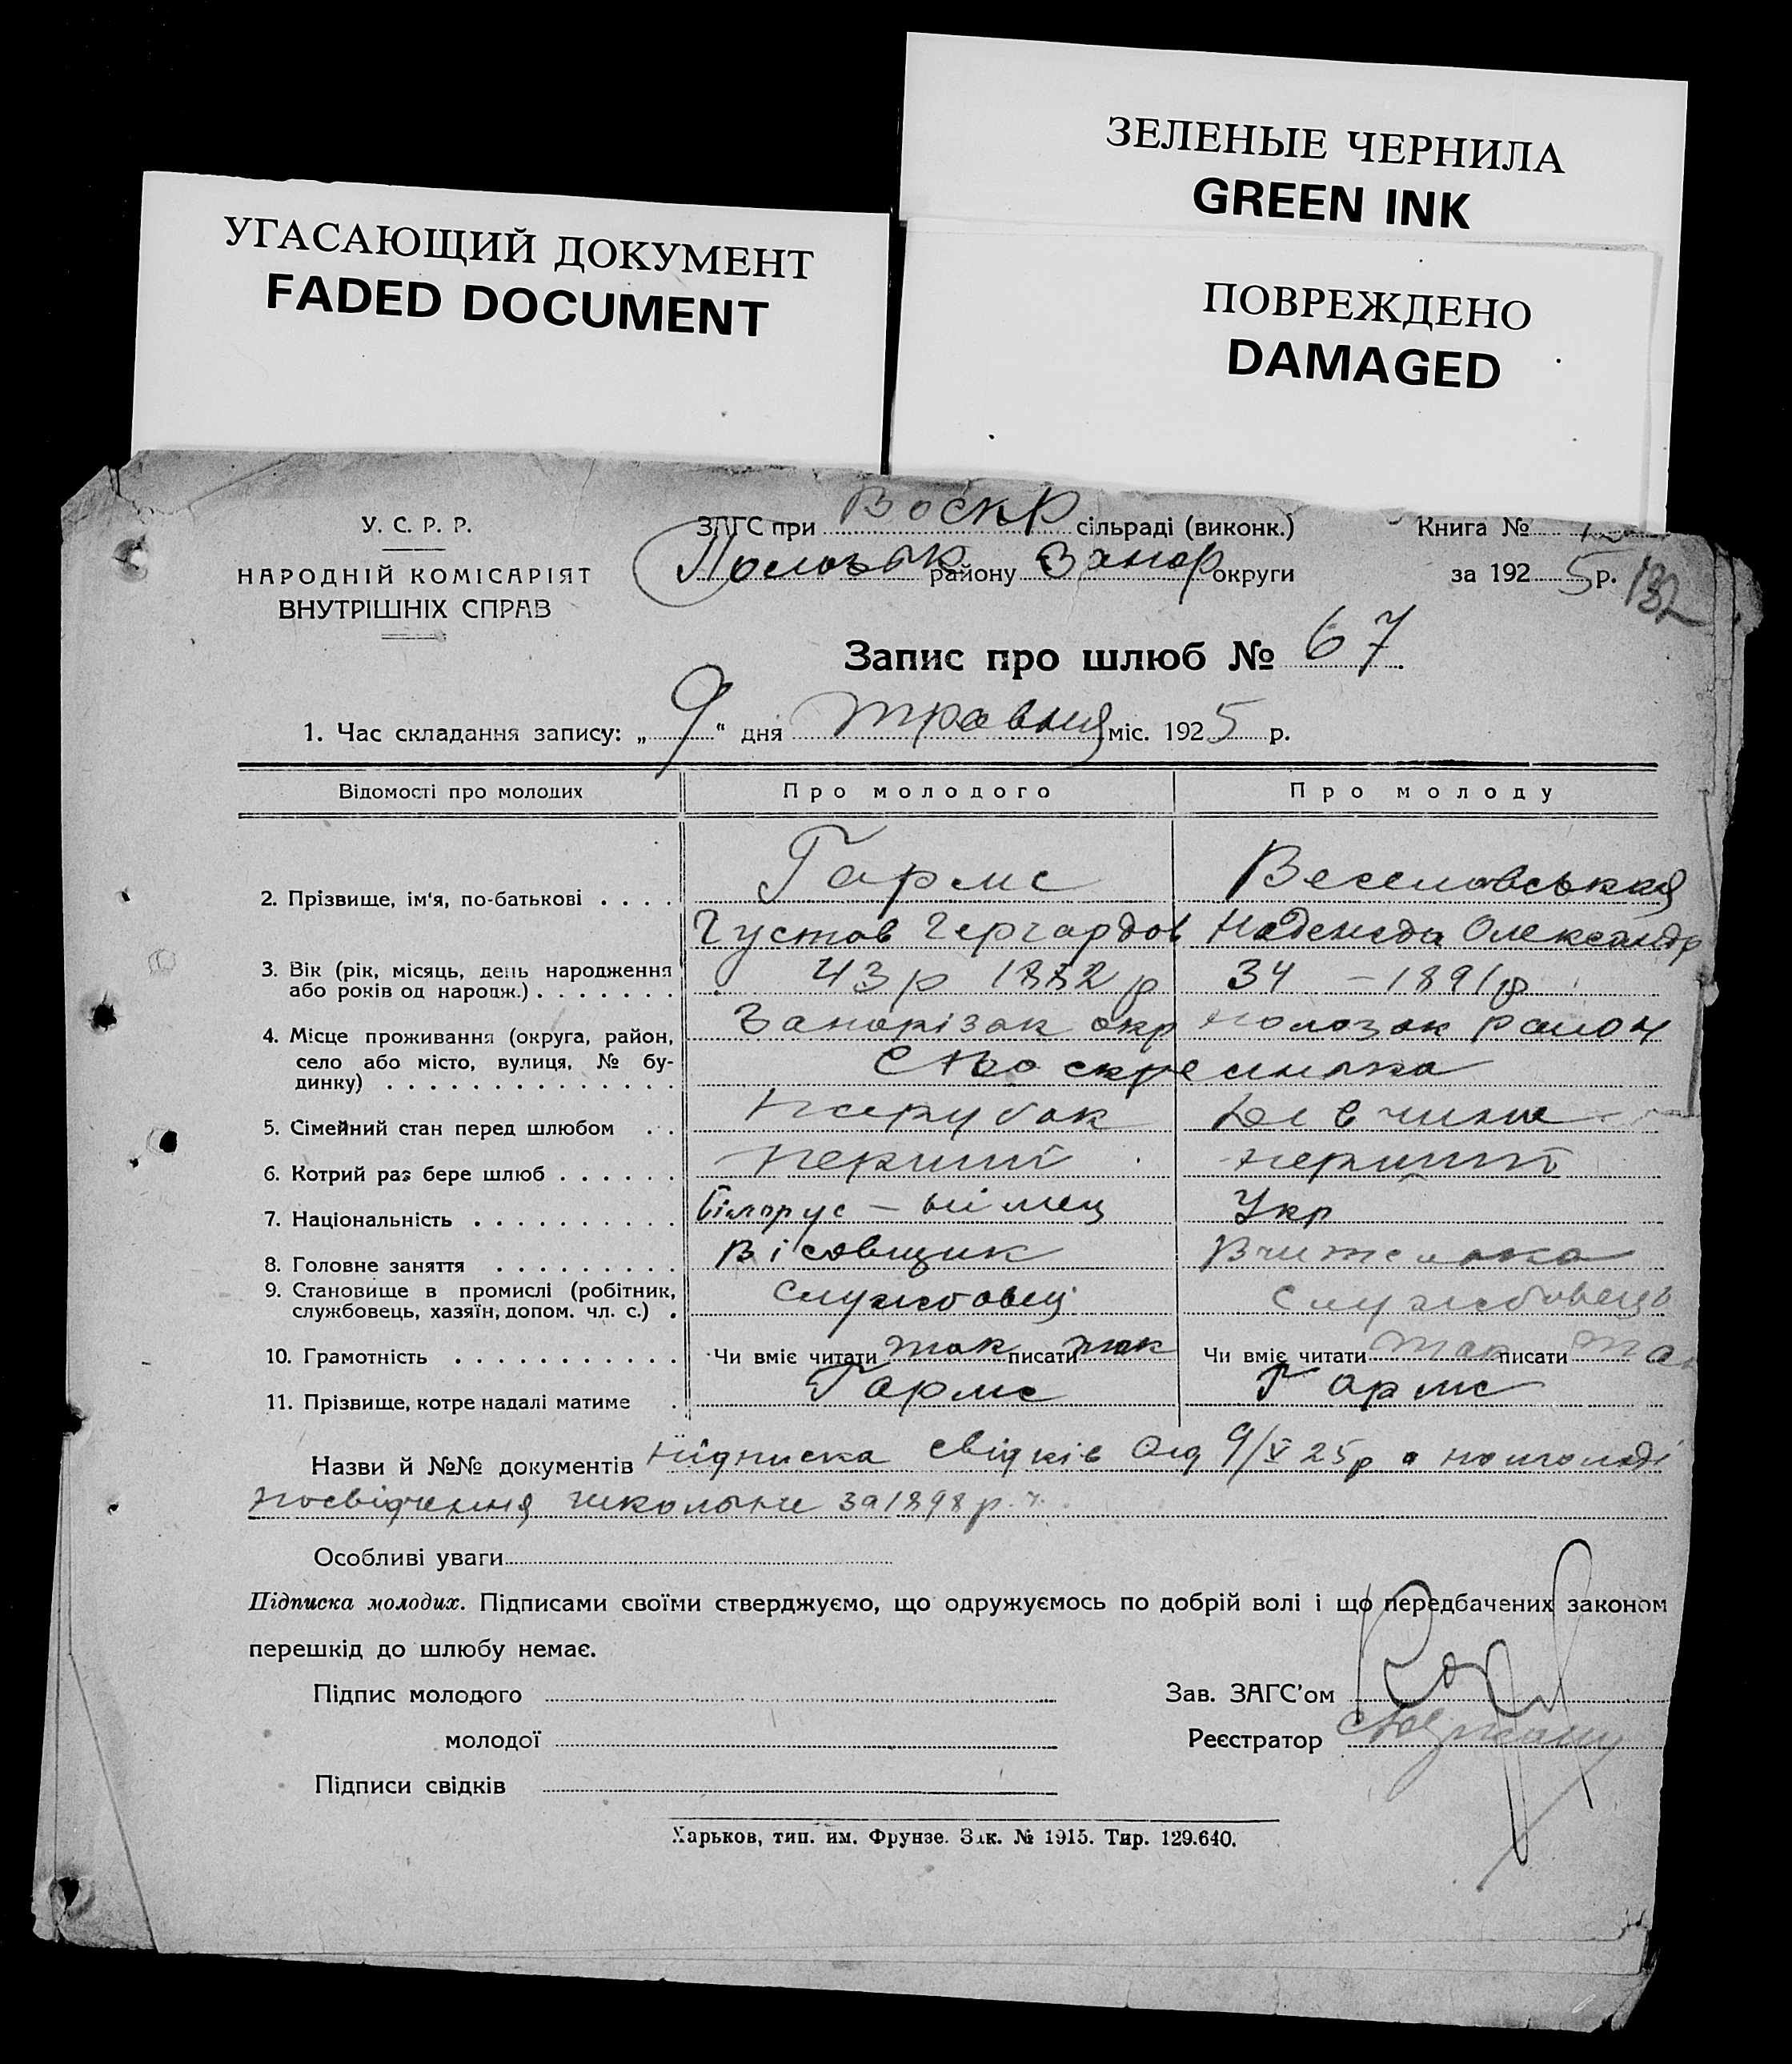 ЗЕЛЕНЫЕ ЧЕРНИЛА
GREEN INK
УГАСАЮЩИЙ ДОКУМЕНТ
FADED DOCUMENT
ПОВРЕЖДЕНО
DAMAGED
У. С. Р. Р.
НАРОДНІЙ КОМІСАРІЯТ
ВНУТРІШНІХ СПРАВ
ЗАГС при Воскр сільраді (виконк.) Книга №
району Запор округи за 1925 р. 132
Запис про шлюб № 67
1. Час складання запису: „ 9 “ дня травня міс. 1925 р.
Відомості про молодих Про молодого Про молоду
Гармс Веселовська
2. Прізвище, ім'я, по-батькові . . . .
Густав Гергардов Надежда Олександр
3. Вік (рік, місяць, день народження
або років од народж.) . . . . . . . 43 р 1882 р 34 – 1891 р
4. Місце проживання (округа, район, Запорізьк окр Полозьк район
село або місто, вулиця, № бу-
динку) . . . . . . . . . . . . . . .
5. Сімейний стан перед шлюбом . . Парубок Дівчина
6. Котрий раз бере шлюб . . . . . . перший перший
7. Національність . . . . . . . . . . білорус – німец Укр
8. Головне заняття . . . . . . . . . Вісовщик Вчителька
9. Становище в промислі (робітник,
службовець, хазяїн, допом. чл. с.) . службовец службовець
10. Грамотність . . . . . . . . . . . Чи вміє читати так писати так Чи вміє читати так писати так
11. Прізвище, котре надалі матиме . Гармс Гармс
Назви й №№ документів підписка свідків од 9/V 25 р
посвідчення школьне за 1898 р.
Особливі уваги
Підписка молодих. Підписами своїми стверджуємо, що одружуємось по добрій волі і що передбачених законом
перешкід до шлюбу немає.
Підпис молодого Зав. ЗАГС'ом
молодої Реєстратор
Підписи свідків
Харьков, тип. им. Фрунзе. Зак. № 1915. Тир. 129.640.